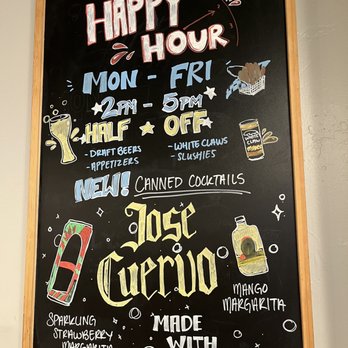 HAPPY
HOUR
MON - FRI
2PM - 5PM
HALF OFF
- DRAFT BEERS
- APPETIZERS
- WHITE CLAWS
- SLUSHIES
NEW! CANNED COCKTAILS
Jose
Cuervo
SPARKLING
STRAWBERRY
MARGARITA
MANGO
MARGARITA
MADE
WITH